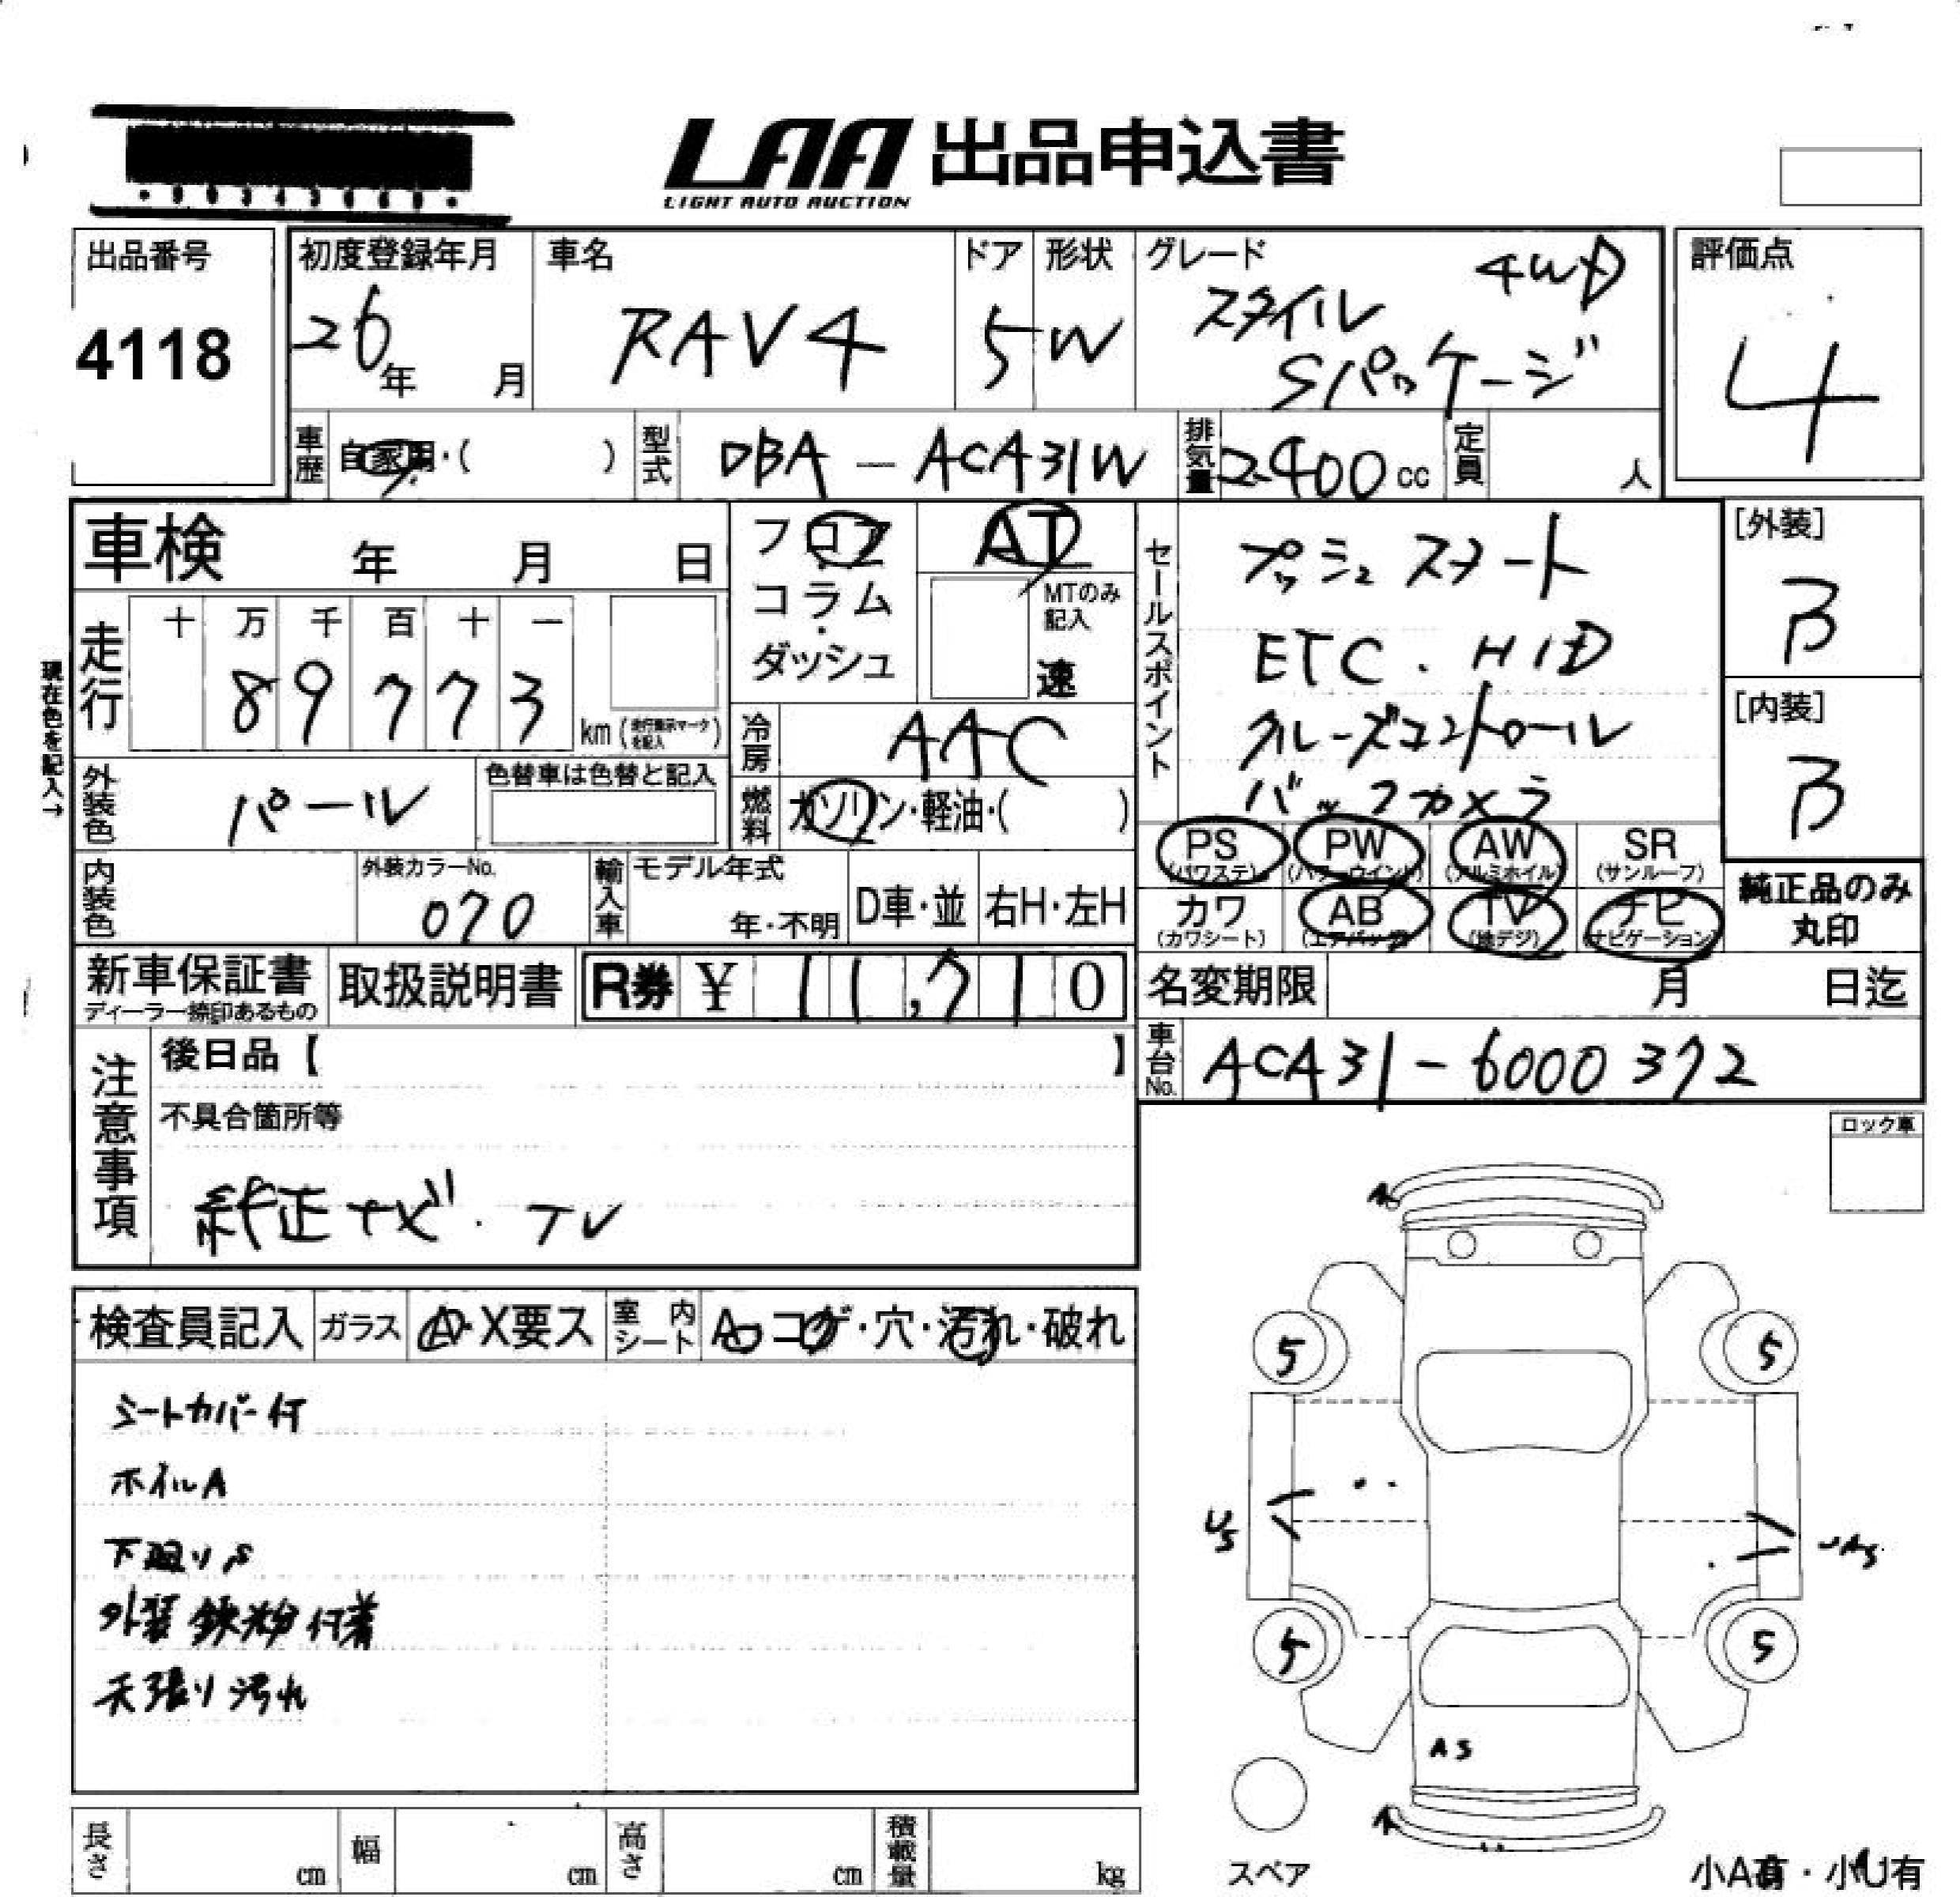 LAA 出品申込書
LIGHT AUTO AUCTION
出品番号
4118
初度登録年月
26年 月
車名
RAV4
ドア
5
形状
W
グレード
4WD
スタイル
Sパッケージ
評価点
4
車歴
自家用・( )
型式
DBA-ACA31W
排気量
2400cc
定員
人
車検 年 月 日
フロア
コラム
ダッシュ
AT
MTのみ記入
速
セールスポイント
プッシュスタート
ETC.HID
クルーズコントロール
バックカメラ
[外装]
B
[内装]
B
現在色を記入→
走行
十 万 千 百 十 一
8 9 7 7 3
km(走行表示マークを記入)
冷房
AAC
外装色
パール
色替車は色替と記入
燃料
ガソリン・軽油・( )
PS
(パワステ)
PW
(パワーウインド)
AW
(アルミホイル)
SR
(サンルーフ)
カワ
(カワシート)
AB
(エアバッグ)
TV
(地デジ)
ナビ
(ナビゲーション)
純正品のみ
丸印
内装色
外装カラーNo.
070
輸入車
モデル年式
年・不明
D車・並
右H・左H
新車保証書
ディーラー捺印あるもの
取扱説明書
R券 ¥ 11,710
名変期限 月 日迄
車台No.
ACA31-6000372
注意事項
後日品【 】
不具合箇所等
純正ナビ.TV
ロック車
検査員記入
ガラス
A・X要ス
室内シート
A・コゲ・穴・汚れ・破れ
シートカバー付
ホイルA
下廻りS
外装鉄粉付着
天張り汚れ
5
5
US
UAS
5
5
AS
スペア
小A有・小U有
長さ cm
幅 cm
高さ cm
積載量 kg